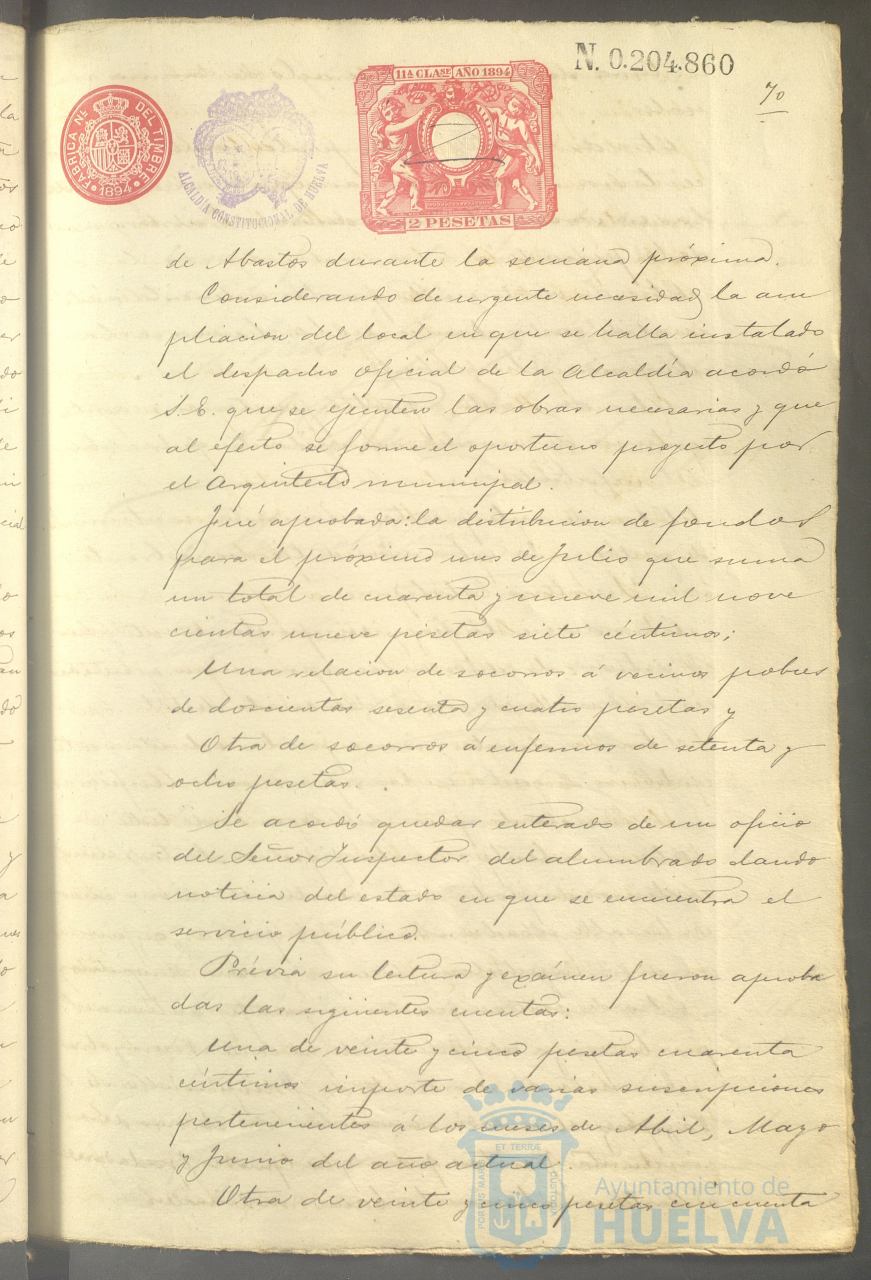 N. 0.204.860
11ª CLASE AÑO 1894
70
FABRICA Nal DEL TIMBRE
1894
ALCALDÍA CONSTITUCIONAL DE HUELVA
2 PESETAS
de Abastos durante la semana próxima.
Considerando de urgente necesidad la am
pliacion del local en que se halla instalado
el despacho oficial de la Alcaldía acordó
S. E. que se ejecuten las obras necesarias y que
al efecto se forme el oportuno proyecto por
el Arquitecto municipal.
Fué aprobada: la distribucion de fondos
para el próximo mes de Julio que suma
un total de cuarenta y nueve mil nove
cientas nueve pesetas siete céntimos;
Una relacion de socorros á vecinos pobres
de doscientas sesenta y cuatro pesetas y
Otra de socorros á enfermos de setenta y
ocho pesetas.
Se acordó quedar enterado de un oficio
del Señor Inspector del alumbrado dando
noticia del estado en que se encuentra el
servicio público.
Prévia su lectura y exámen fueron aproba
das las siguientes cuentas:
Una de veinte y cinco pesetas cuarenta
céntimos importe de varias suscripciones
pertenecientes á los meses de Abril, Mayo
y Junio del año actual.
Otra de veinte y cinco pesetas cincuenta
ET TERRE
PORTUS MARIS
CUSTODIA
Ayuntamiento de
HUELVA